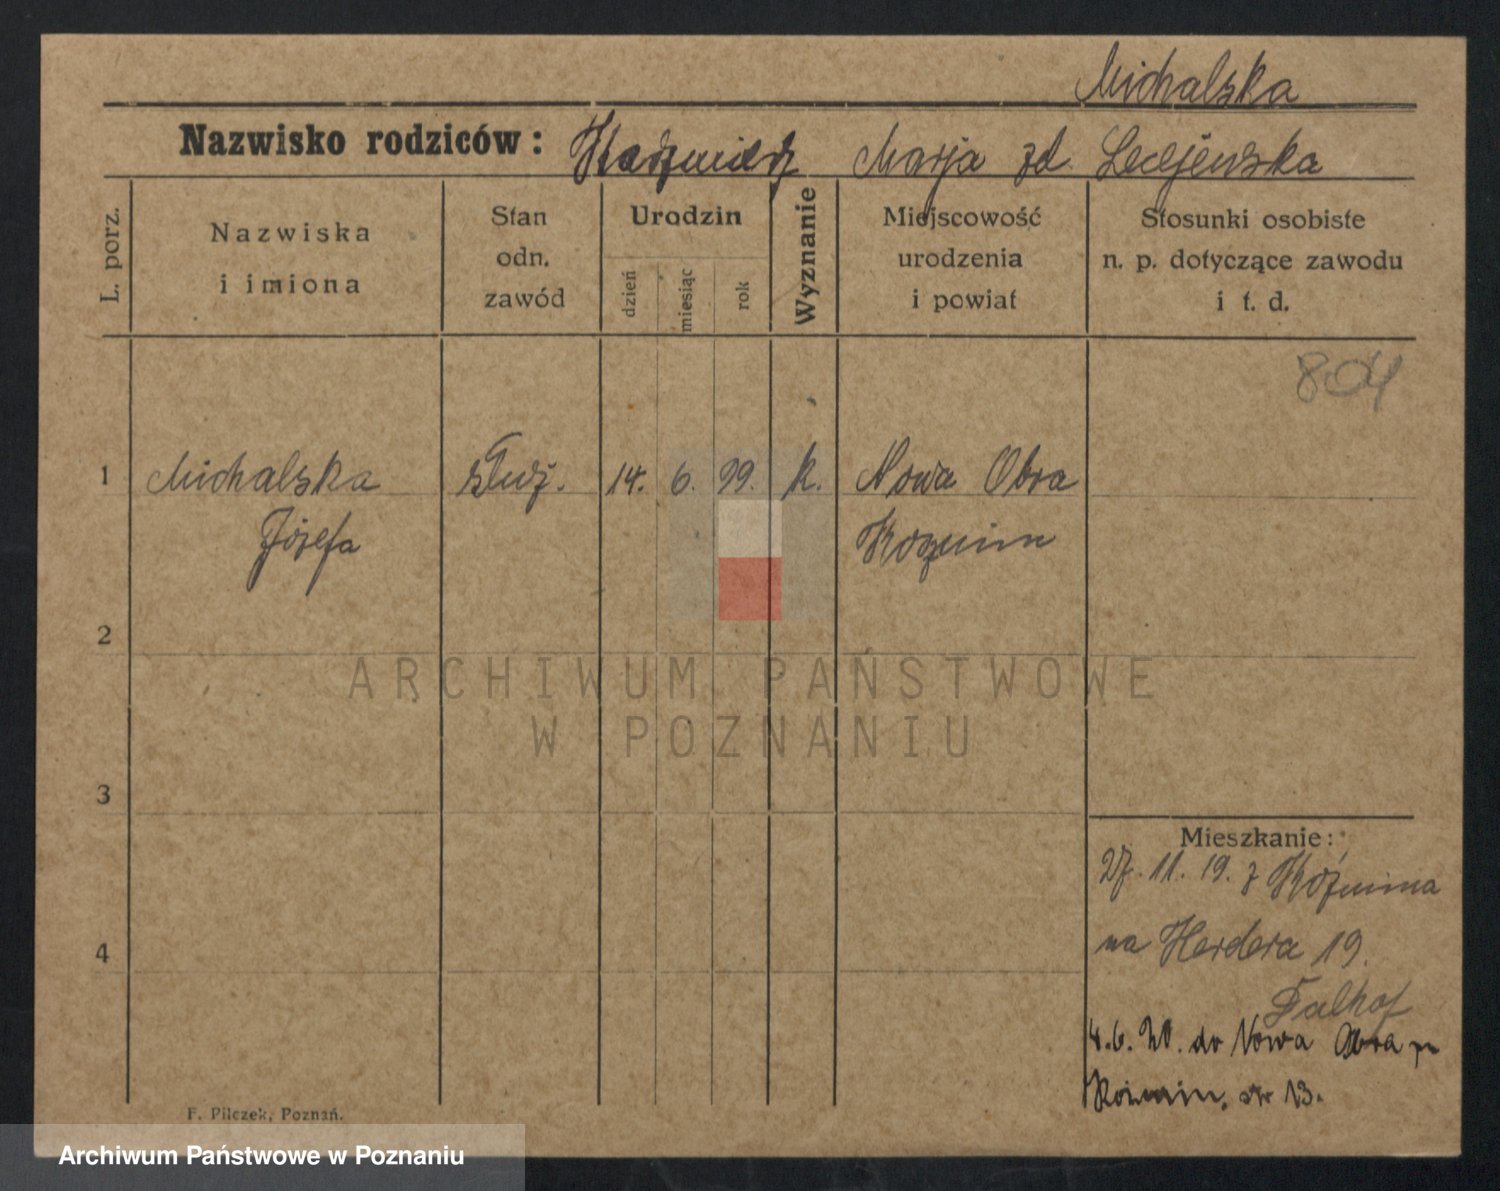 Michalska
Nazwisko rodziców: Kazimierz Marja zd. Lecejewska
L. porz.
Nazwiska
i imiona
Stan
odn.
zawód
Urodzin
dzień
miesiąc
rok
Wyznanie
Miejscowość
urodzenia
i powiat
Stosunki osobiste
n. p. dotyczące zawodu
i t. d.
804
1 Michalska służ. 14. 6. 99. k. Nowa Obra
Józefa Kozmin
2
ARCHIWUM PAŃSTWOWE
W POZNANIU
3
Mieszkanie:
27. 11. 19. z Koźmina
na Herdera 19.
4
Falhof
4. 6. 20. do Nowa Obra
Kozmin, 13.
F. Pilczek, Poznań.
Archiwum Państwowe w Poznaniu